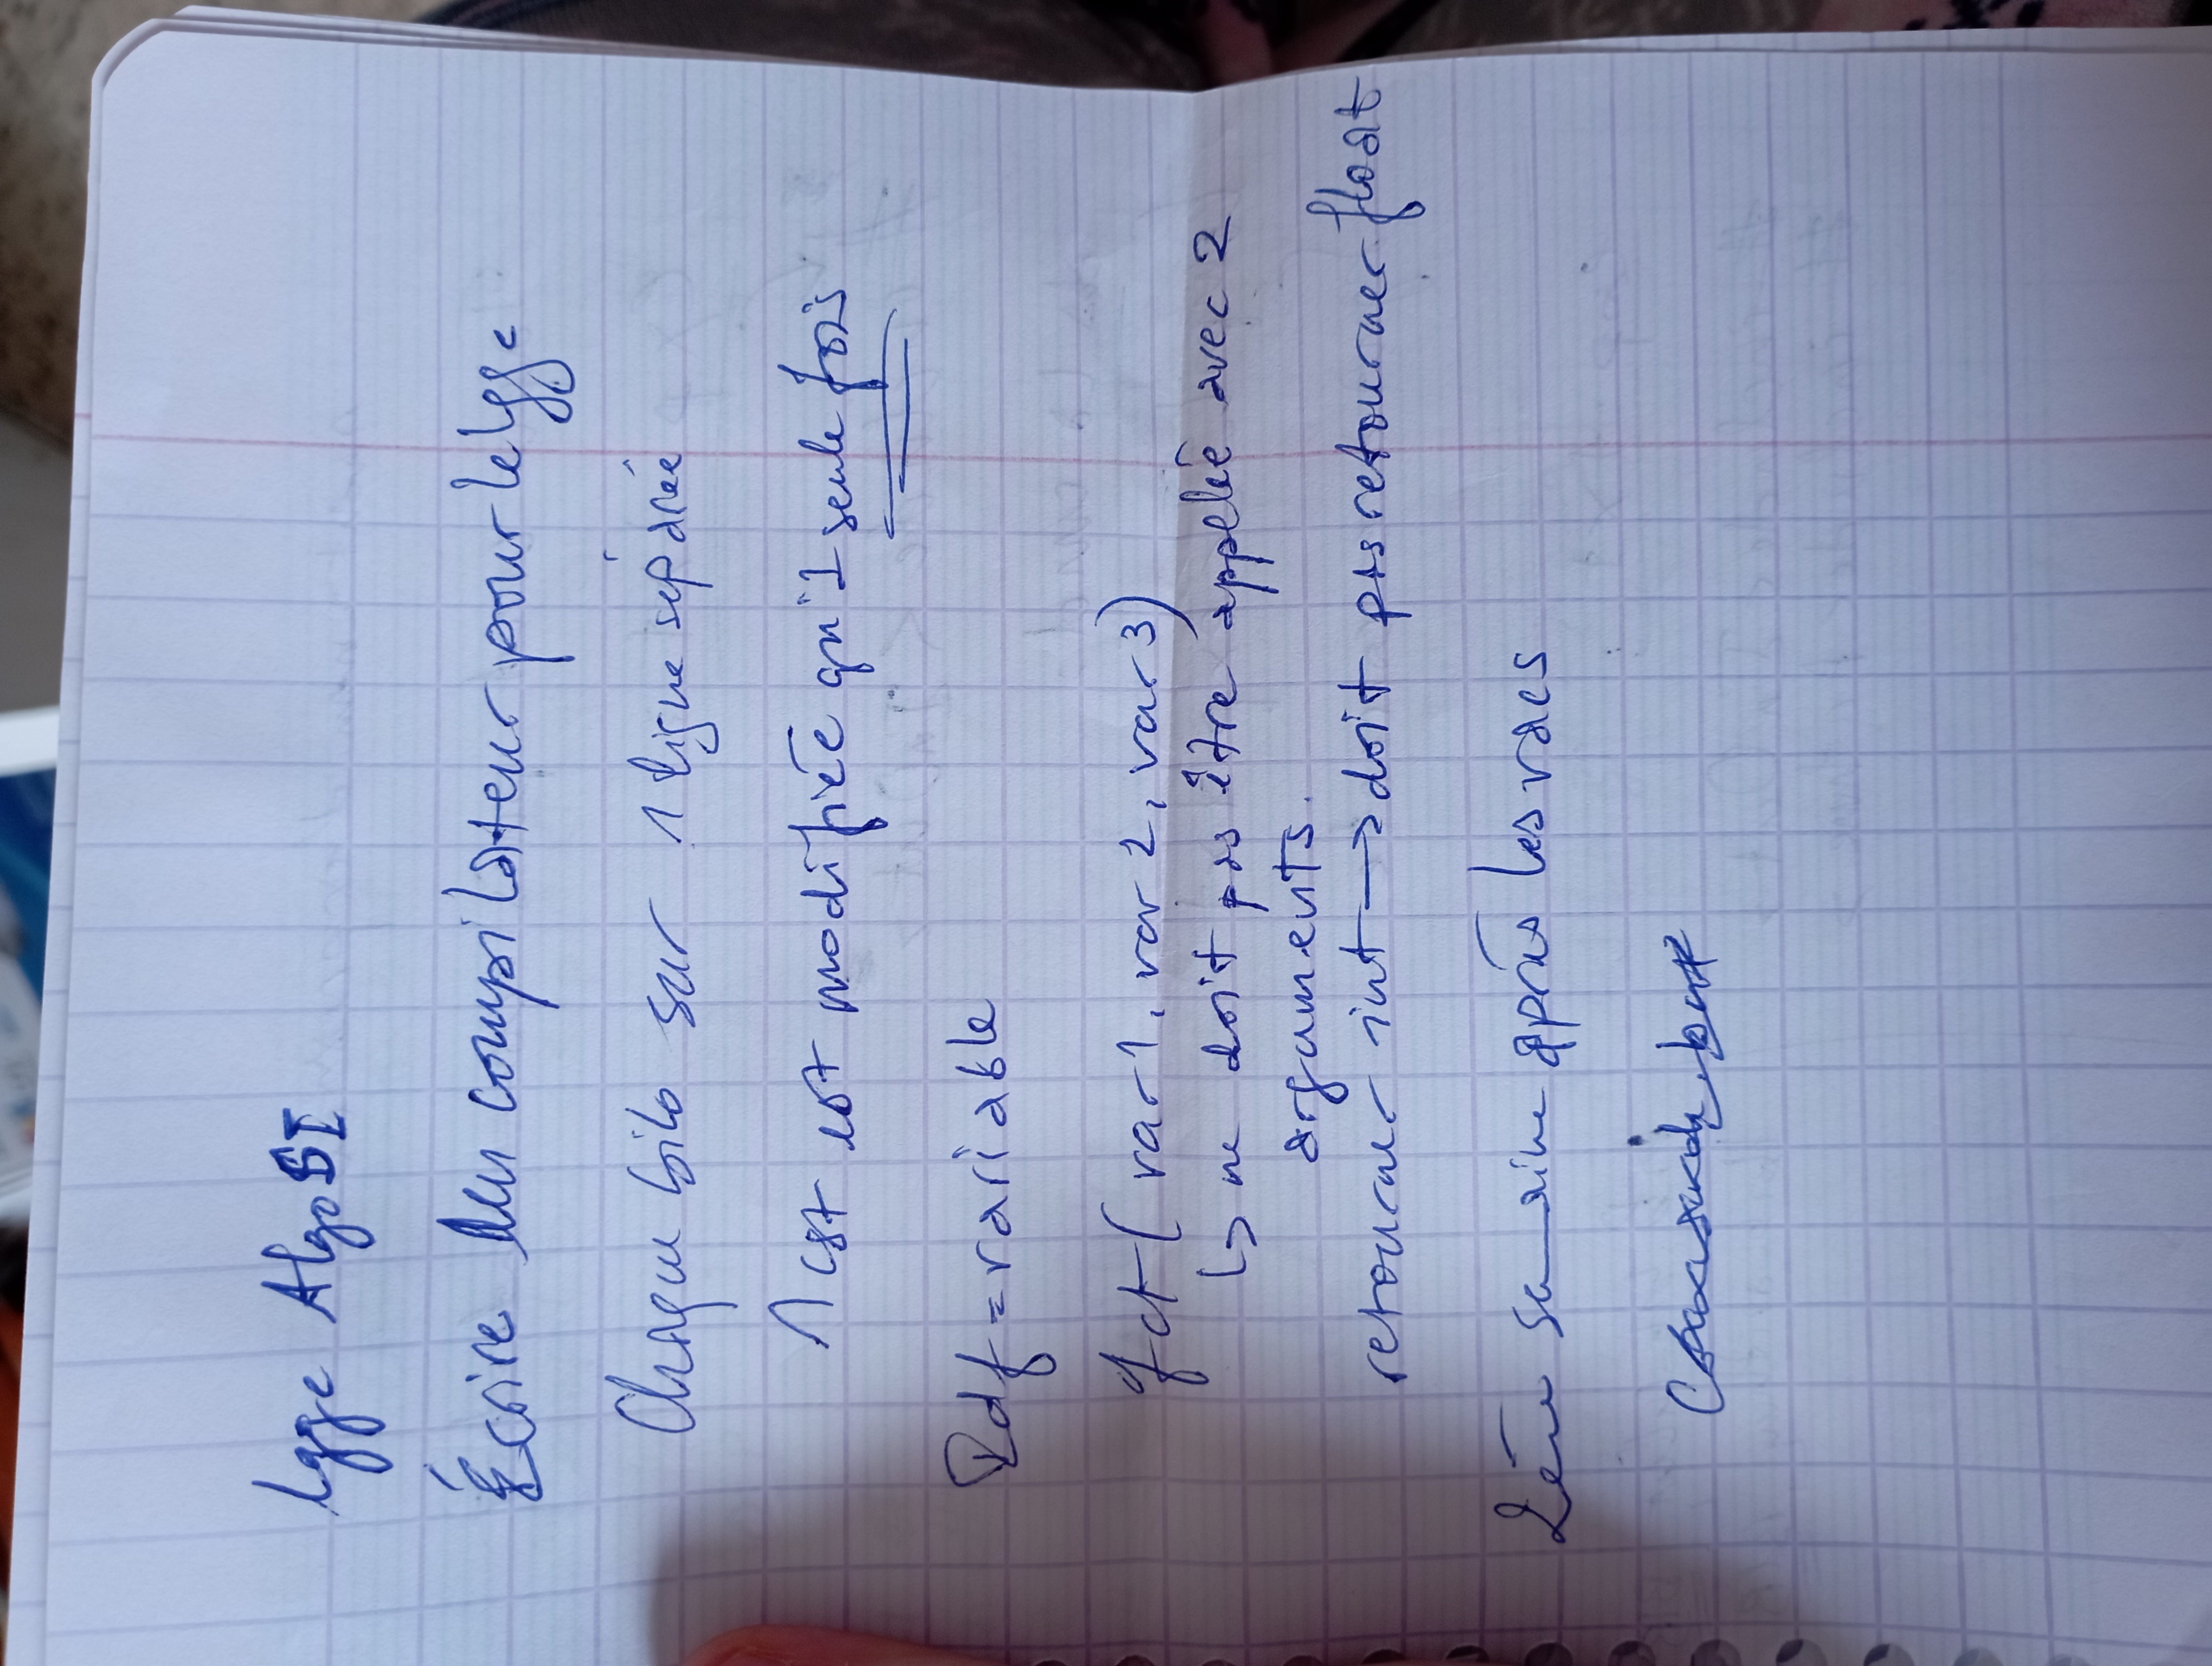 lgge AlgoSI
Écrire un compilateur pour le lgge
Chaque bilo sur 1 ligne séparée
1 cst est modifiée qu'1 seule fois
Idf = variable
fct ( var 1, var 2, var 3)
↳ ne doit pas être appelée avec 2
arguments.
retourner int → doit pas retourner float
2ème semaine après les vacs